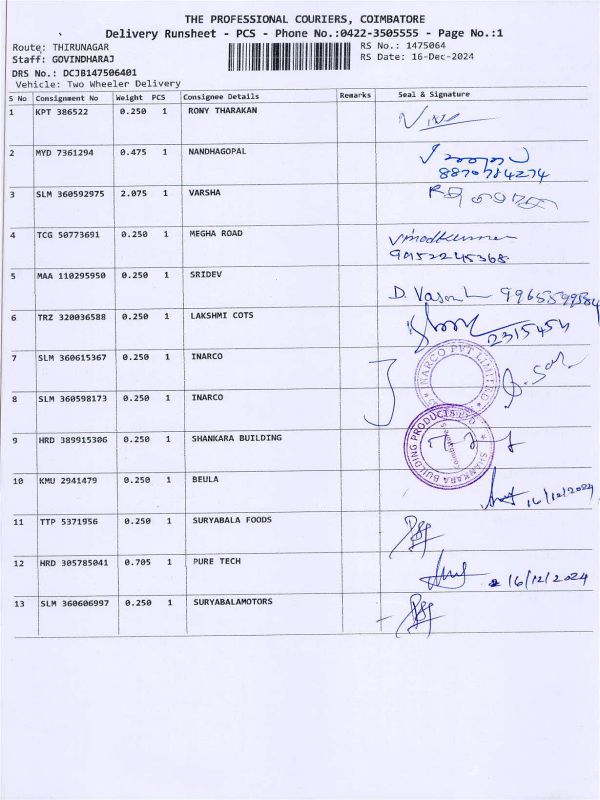 THE PROFESSIONAL COURIERS, COIMBATORE
Delivery Runsheet - PCS - Phone No.:0422-3505555 - Page No.:1
Route: THIRUNAGAR RS No.: 1475064
Staff: GOVINDHARAJ RS Date: 16-Dec-2024
DRS No.: DCJB147506401
Vehicle: Two Wheeler Delivery
S No Consignment No Weight PCS Consignee Details Remarks Seal & Signature
1 KPT 386522 0.250 1 RONY THARAKAN
2 MYD 7361294 0.475 1 NANDHAGOPAL
8870784274
3 SLM 360592975 2.075 1 VARSHA
4 TCG 50773691 0.250 1 MEGHA ROAD Vinodkumar
5 MAA 110295950 0.250 1 SRIDEV
D. Vasanth
6 TRZ 320036588 0.250 1 LAKSHMI COTS
2315454
7 SLM 360615367 0.250 1 INARCO
INARCO PVT LIMITED
8 SLM 360598173 0.250 1 INARCO
9 HRD 389915306 0.250 1 SHANKARA BUILDING
SHANKARA BUILDING PRODUCTS LTD
Coimbatore
10 KMU 2941479 0.250 1 BEULA
16/12/2024
11 TTP 5371956 0.250 1 SURYABALA FOODS
12 HRD 305785041 0.705 1 PURE TECH
16/12/2024
13 SLM 360606997 0.250 1 SURYABALAMOTORS